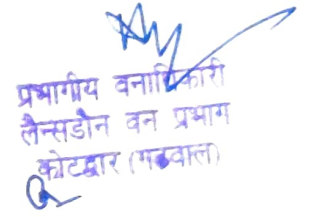 प्रभागीय वनाधिकारी
लैन्सडौन वन प्रभाग
कोटद्वार (गढवाल)